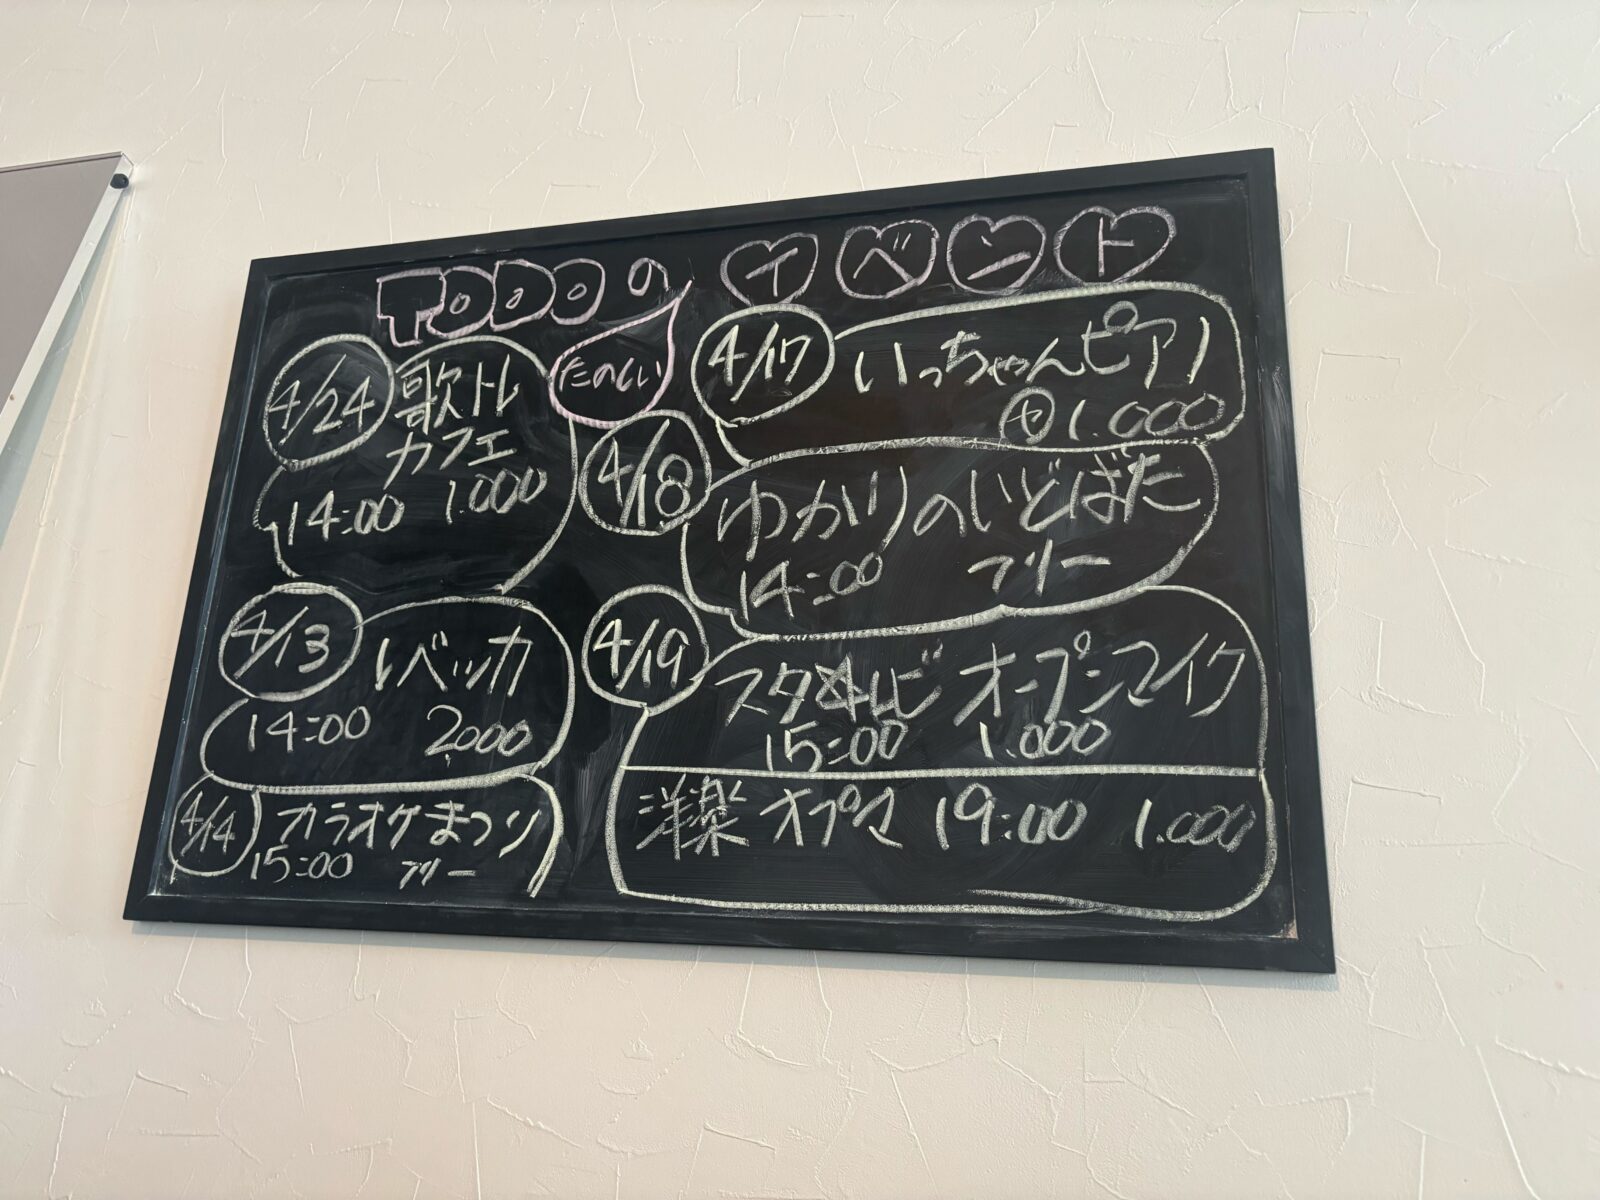 TODOの
たのしい
イベント
4/24
歌トレ
カフェ
14:00 1.000
4/13
レベッカ
14:00 2000
4/14
カラオケまつり
15:00 フリー
4/17
いっちゃんピアノ
1.000
4/18
ゆかりのいどばた
14:00 フリー
4/19
オープンマイク
15:00 1.000
洋楽 オプマ 19:00 1.000